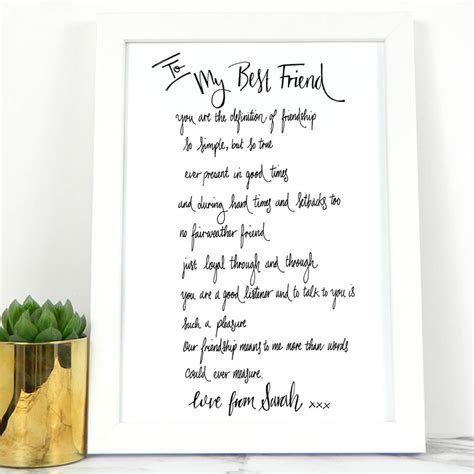 To My Best Friend
you are the definition of friendship
so simple, but so true
ever present in good times
and during hard times and setbacks too
no fairweather friend
just loyal through and through
you are a good listener and to talk to you is
such a pleasure
Our friendship means to me more than words
could ever measure.
love from Sarah xxx